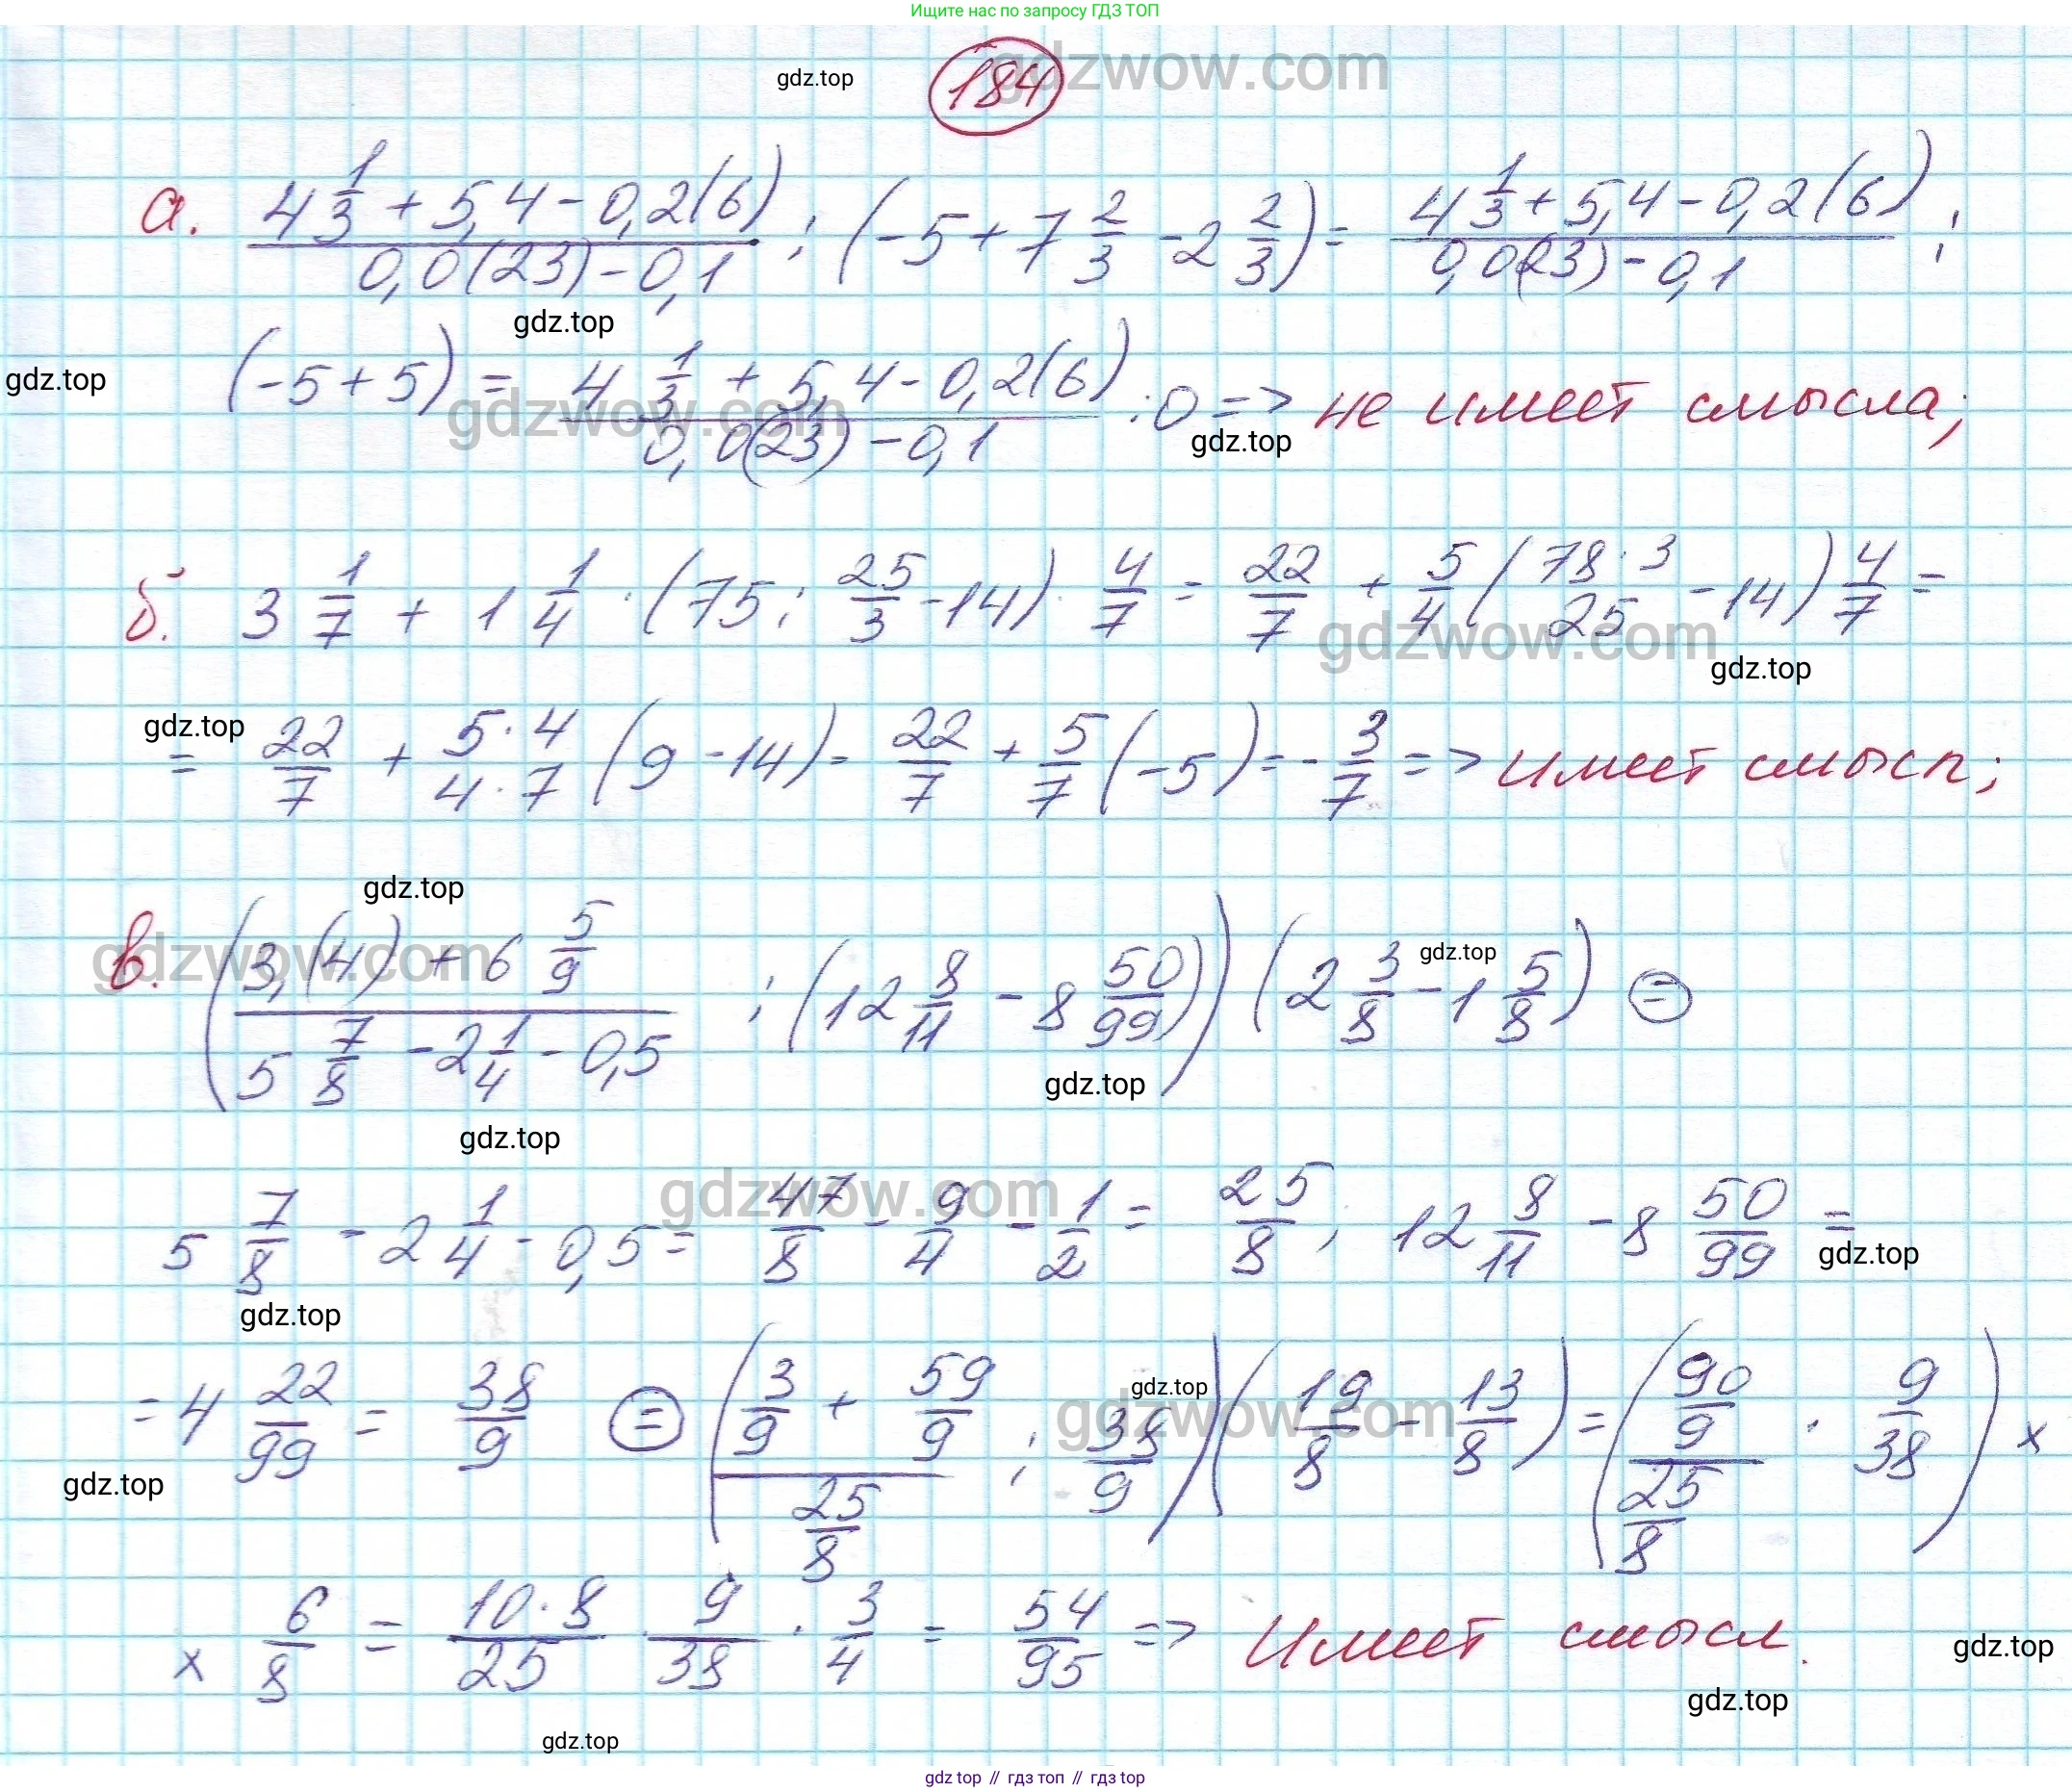 Ищите нас по запросу ГДЗ ТОП
gdz.top 184 gdzwow.com
а. (4 1/3 + 5,4 - 0,2(6))/(0,0(23) - 0,1) : (-5 + 7 2/3 - 2 2/3) = (4 1/3 + 5,4 - 0,2(6))/(0,0(23) - 0,1) :
gdz.top
gdz.top (-5 + 5) = (4 1/3 + 5,4 - 0,2(6))/(0,0(23) - 0,1) : 0 => не имеет смысла;
gdzwow.com gdz.top
б. 3 1/7 + 1 1/4 · (75 : 25/3 - 14) · 4/7 = 22/7 + 5/4 (78·3/25 - 14) 4/7 =
gdzwow.com gdz.top
gdz.top
= 22/7 + 5·4/4·7 (9 - 14) = 22/7 + 5/7 (-5) = -3/7 => имеет смысл;
gdz.top
gdzwow.com gdz.top
в. ((3,(4) + 6 5/9)/(5 7/8 - 2 1/4 - 0,5) : (12 8/11 - 8 50/99)) (2 3/8 - 1 5/8) =
gdz.top
gdz.top
gdzwow.com
5 7/8 - 2 1/4 - 0,5 = 47/8 - 9/4 - 1/2 = 25/8; 12 8/11 - 8 50/99 =
gdz.top
gdz.top
gdz.top gdzwow.com
= 4 22/99 = 38/9 = ((3/9 + 59/9)/(25/8) : 38/9) (19/8 - 13/8) = ((90/9)/(25/8) · 9/38) ×
gdz.top
× 6/8 = 10·8/25 · 9/38 · 3/4 = 54/95 => имеет смысл.
gdz.top
gdz.top
gdz.top
gdz top // гдз топ // gdz top